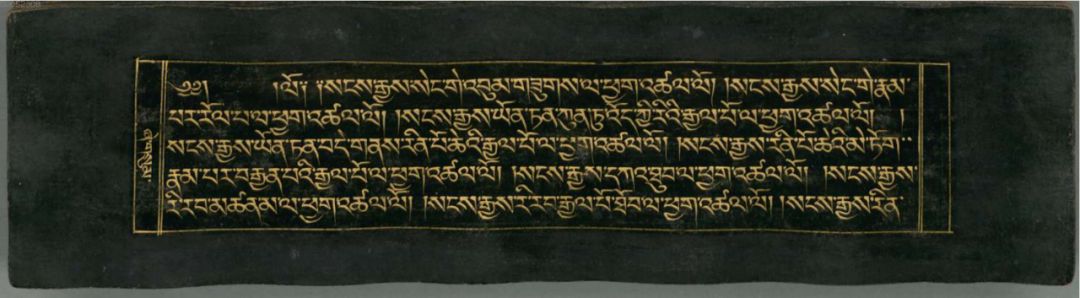 ༄༅། །ལོ༔ ༔སངས་རྒྱས་སེང་གེ་འབུམ་གཟུགས་ལ་ཕྱག་འཚལ་ལོ། །སངས་རྒྱས་སེང་གེ་རྣམ་
པར་རོལ་པ་ལ་ཕྱག་འཚལ་ལོ། །སངས་རྒྱས་ཡོན་ཏན་ཀུན་ཏུ་འོད་ཀྱི་རི་བོའི་རྒྱལ་པོ་ལ་ཕྱག་འཚལ་ལོ། །
སངས་རྒྱས་ཡོན་ཏན་བང་གནས་རིན་པོ་ཆེའི་རྒྱལ་པོ་ལ་ཕྱག་འཚལ་ལོ། །སངས་རྒྱས་རིན་པོ་ཆེའི་མེ་ཏོག་
རྣམ་པར་བརྒྱན་པའི་རྒྱལ་པོ་ལ་ཕྱག་འཚལ་ལོ། །སངས་རྒྱས་དཀའ་ཐུབ་ལ་ཕྱག་འཚལ་ལོ། །སངས་རྒྱས་
རི་རབ་མཚན་མ་ལ་ཕྱག་འཚལ་ལོ། །སངས་རྒྱས་རི་རབ་རྒྱལ་པོ་ཐོབ་ལ་ཕྱག་འཚལ་ལོ། །སངས་རྒྱས་རིན་